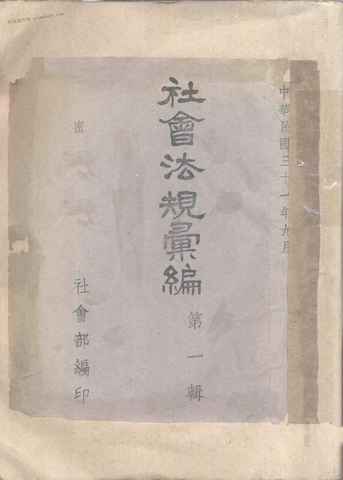 中華民國三十一年九月
社會法規彙編
第一輯
社會部編印